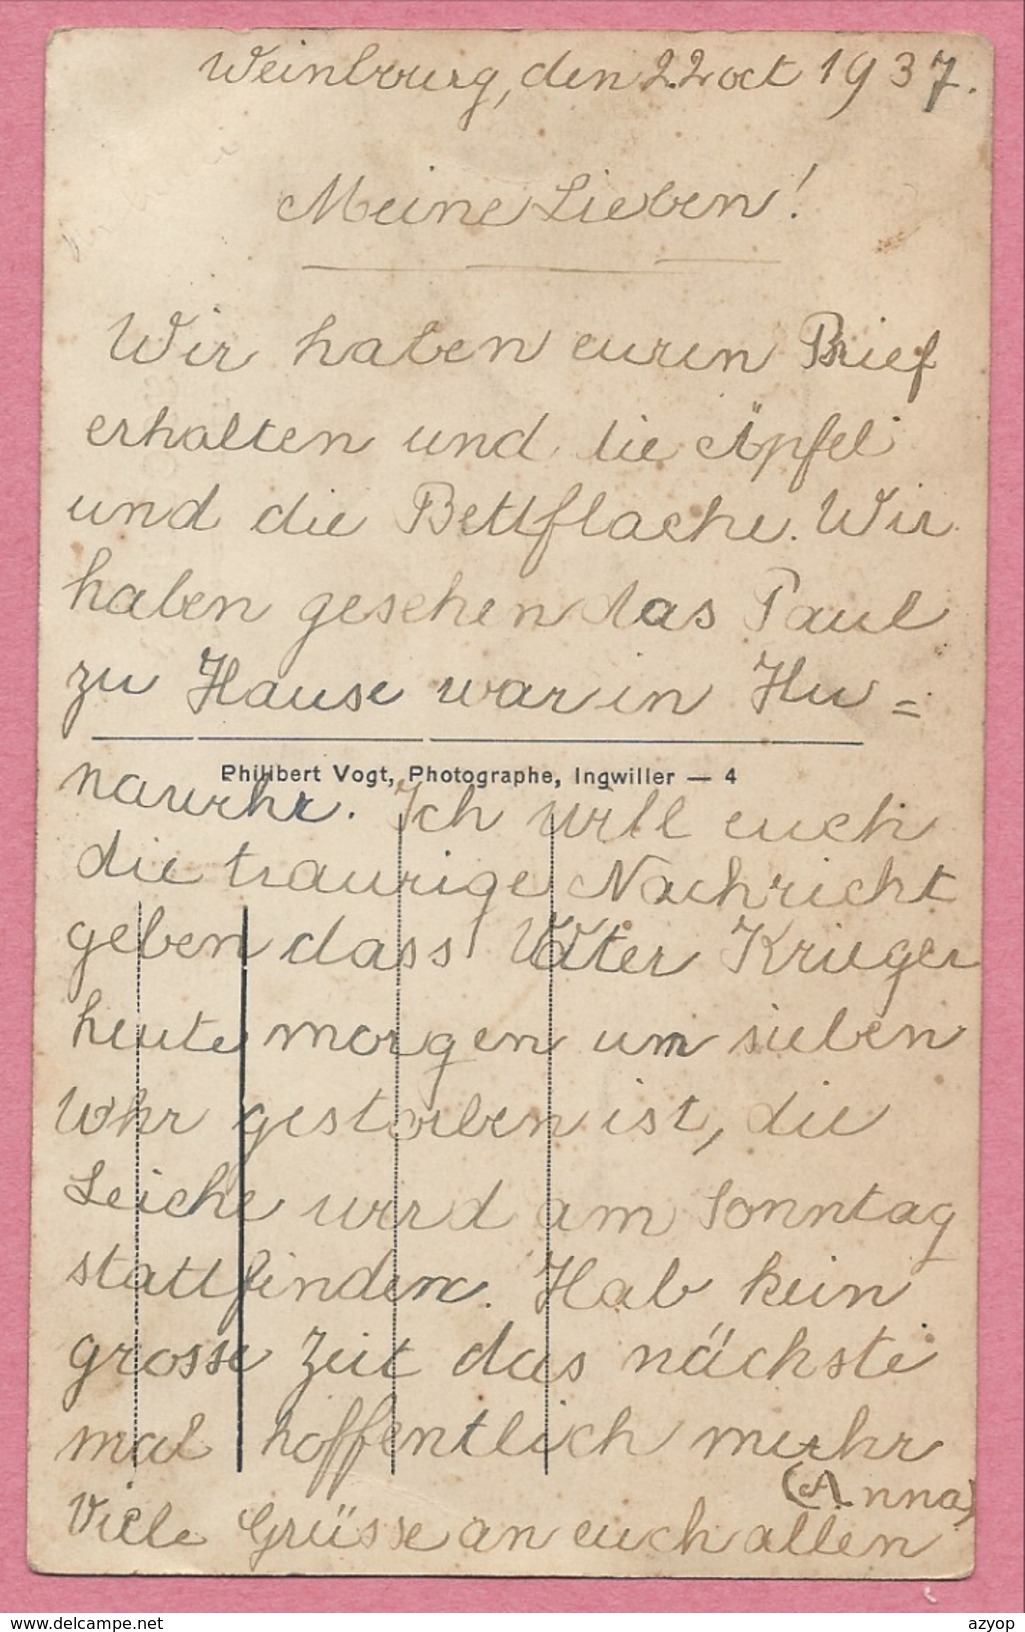 Weinbourg, den 22 oct 1937.
Meine Lieben!
Wir haben euren Brief
erhalten und die Äpfel
und die Bettflasche. Wir
haben gesehen das Paul
zu Hause war in Hu=
Philibert Vogt, Photographe, Ingwiller — 4
nawehr. Ich will euch
die traurige Nachricht
geben dass Vater Krieger
heute morgen um sieben
Uhr gestorben ist, die
Leiche wird am Sonntag
stattfinden. Hab kein
grosse Zeit das nächste
mal hoffentlich mehr
(Anna)
Viele Grüsse an euch allen
www.delcampe.net
azyop